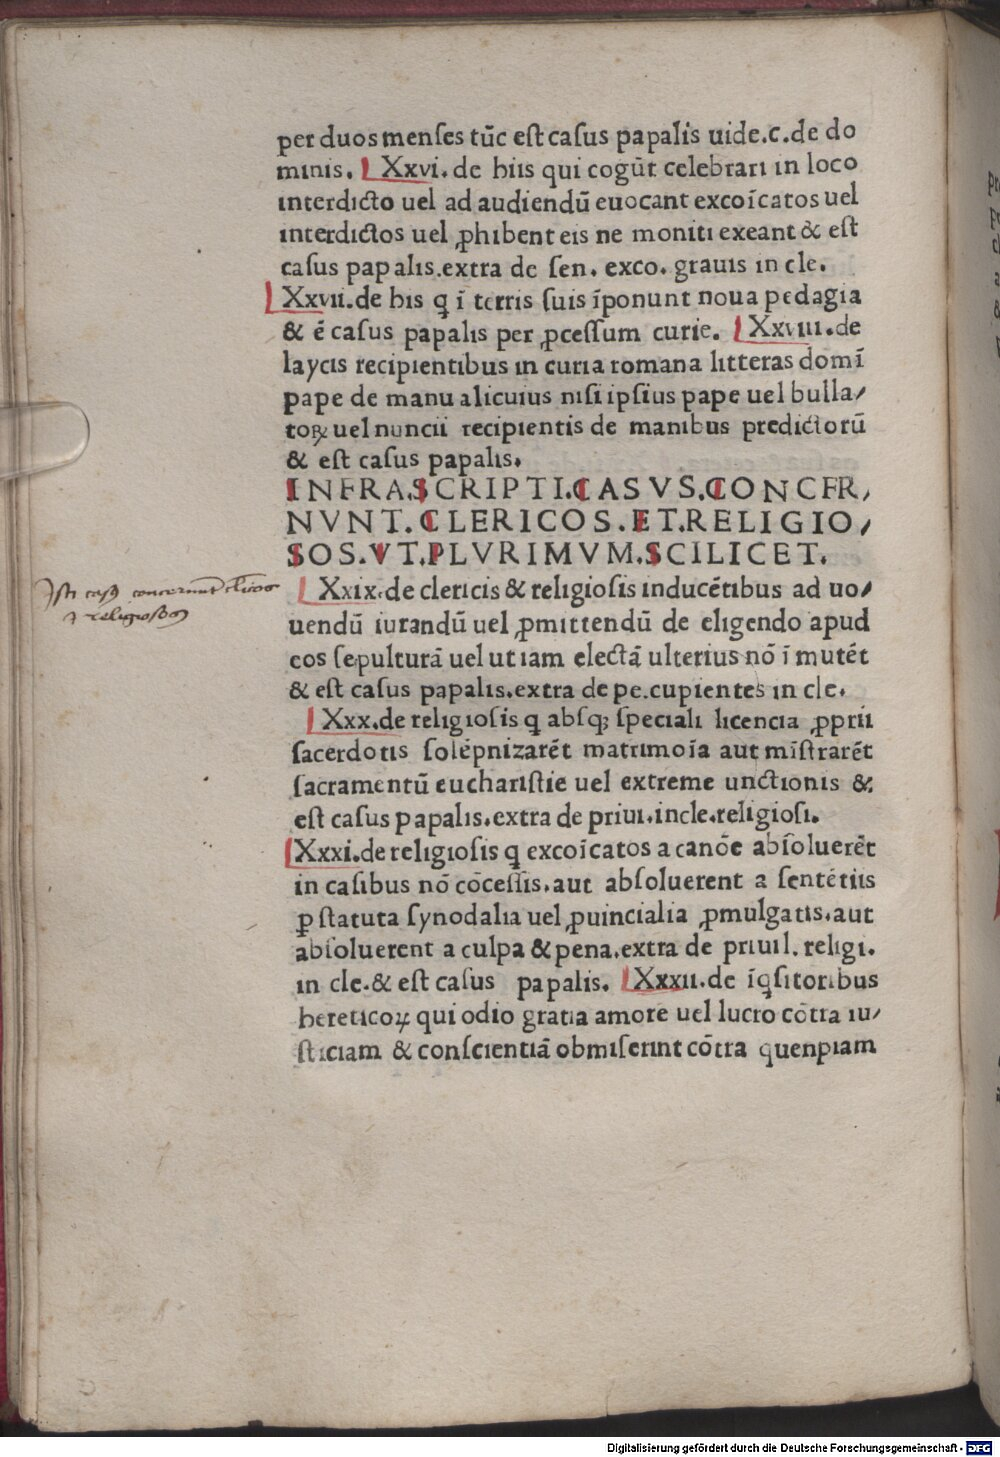 per duos menses tūc est casus papalis uide.c.de do
minis. Xxvi.de hiis qui cogūt celebrari in loco
interdicto uel ad audiendū euocant excoīcatos uel
interdictos uel ꝓhibent eis ne moniti exeant & est
casus papalis.extra de sen. exco. grauis in cle.
Xxvii.de his q̨ ī terris suis īponunt noua pedagia
& ē casus papalis per ꝓcessum curie. Xxviii.de
laycis recipientibus in curia romana litteras domī
pape de manu alicuius nisi ipsius pape uel bulla/
toꝝ uel nuncii recipientis de manibus predictorū
& est casus papalis.
INFRA.SCRIPTI.CASVS.CONCER/
NVNT.CLERICOS.ET.RELIGIO/
SOS.VT.PLVRIMVM.SCILICET.
Xxix.de clericis & religiosis inducētibus ad uo/
uendū iurandū uel ꝓmittendū de eligendo apud
eos sepulturā uel ut iam electā ulterius nō ī mutēt
& est casus papalis.extra de pe.cupientes in cle.
Xxx.de religiosis q̨ absqꝫ speciali licencia ꝓprii
sacerdotis solēpnizarēt matrimoīa aut mīstrarēt
sacramentū eucharistie uel extreme unctionis &
est casus papalis.extra de priui.in cle.religiosi.
Xxxi.de religiosis q̨ excoīcatos a canōe absoluerēt
in casibus nō cōcessis.aut absoluerent a sentētiis
ꝑ statuta synodalia uel ꝓuincialia ꝓmulgatis.aut
absoluerent a culpa & pena.extra de priuil. religi.
in cle.& est casus papalis. Xxxii.de īq̨sitoribus
hereticoꝝ qui odio gratia amore uel lucro cōtra iu/
sticiam & conscientiā obmiserint cōtra quenpiam
Isti casꝰ concernunt clericos
et religiosos
Digitalisierung gefördert durch die Deutsche Forschungsgemeinschaft - DFG